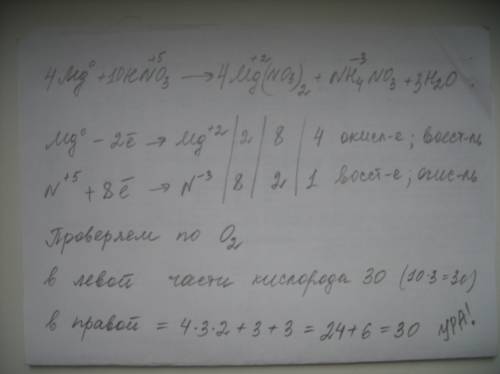 4Mg⁰ + 10HN⁺⁵O₃ → 4Mg⁺²(NO₃)₂ + N⁻³H₄NO₃ + 3H₂O.
Mg⁰ - 2ē → Mg⁺² | 2 | 8 | 4 окисл-е; восст-ль
N⁺⁵ + 8ē → N⁻³ | 8 | 2 | 1 восст-е; окис-ль
Проверяем по O₂
в левой части кислорода 30 (10·3=30)
в правой = 4·3·2 + 3 + 3 = 24+6 = 30 УРА!